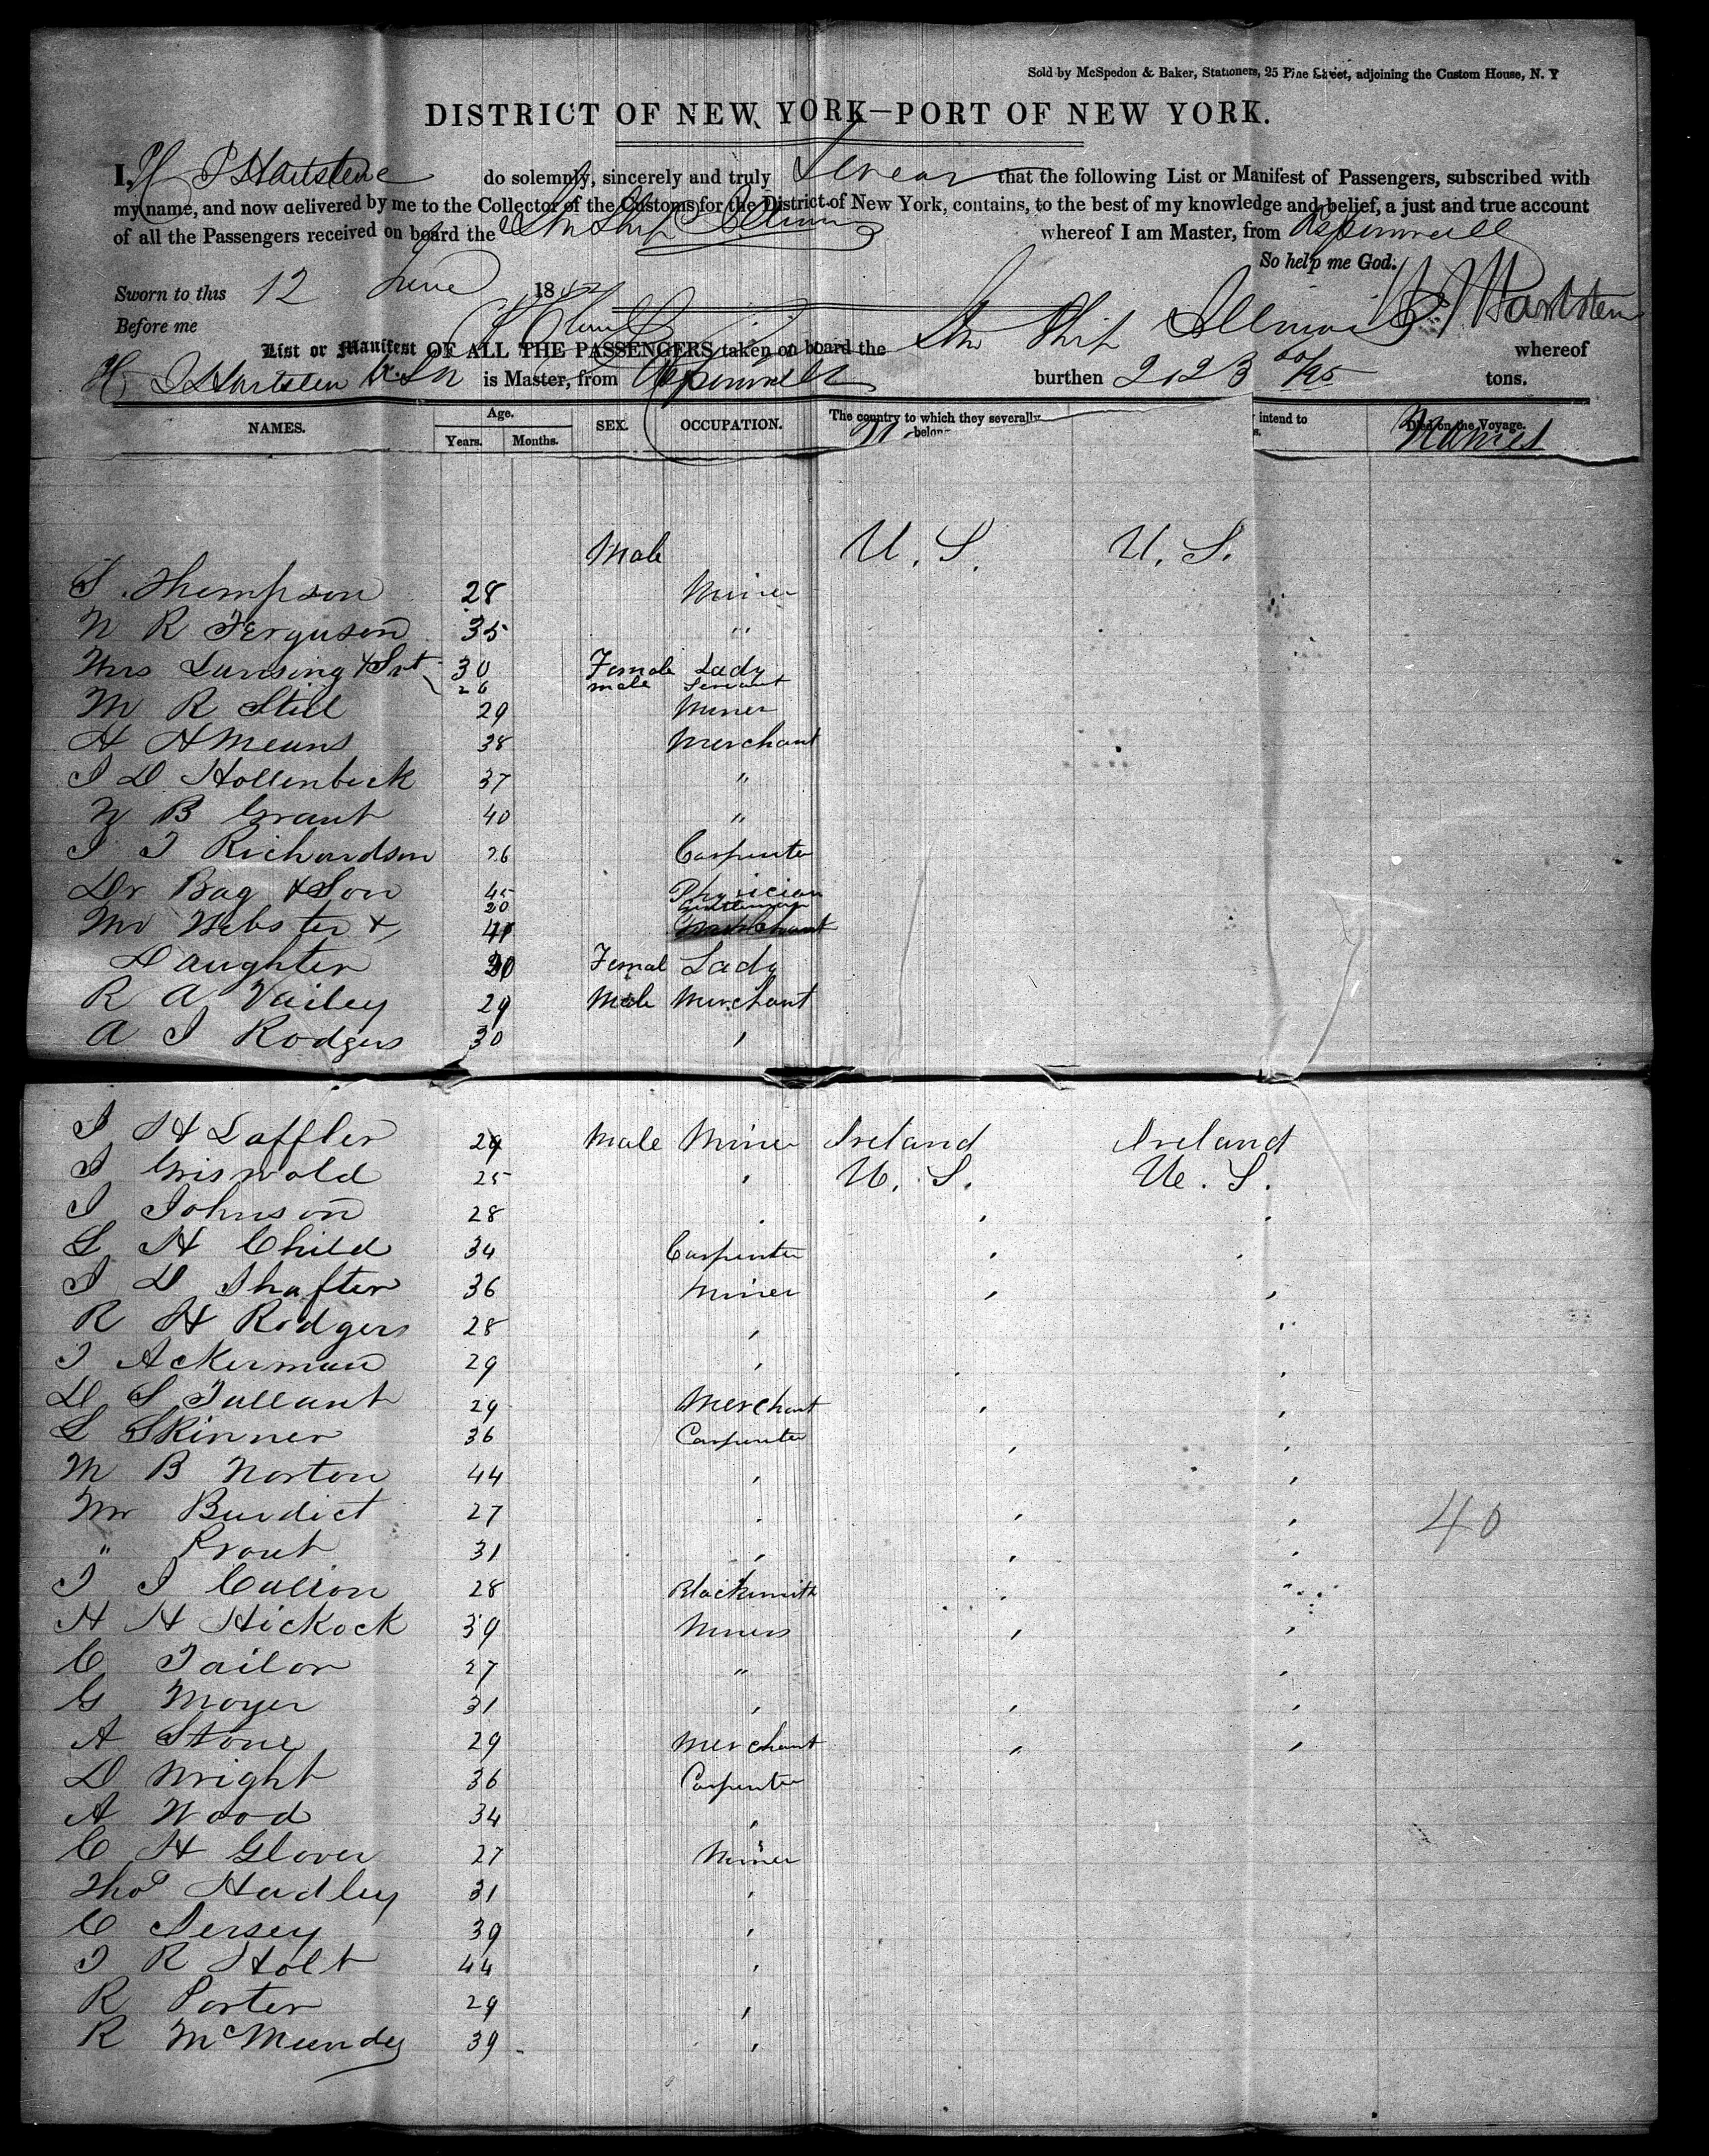 Sold by McSpedon & Baker, Stationers, 25 Pine Street, adjoining the Custom House, N. Y
DISTRICT OF NEW YORK—PORT OF NEW YORK.
I, H J Hartstene do solemnly, sincerely and truly Swear that the following List or Manifest of Passengers, subscribed with
my name, and now delivered by me to the Collector of the Customs for the District of New York, contains, to the best of my knowledge and belief, a just and true account
of all the Passengers received on board the Stm Ship Illinois whereof I am Master, from Aspinwall
So help me God.
Sworn to this 12 June 18
Before me
List or Manifest OF ALL THE PASSENGERS taken on board the Stm Ship Illinois whereof
H J Hartsten is Master, from Aspinwall burthen 2123 60/95 tons.
NAMES. Age. Years. Months. SEX. OCCUPATION. The country to which they severally belong intend to Died on the Voyage.
Names
Male U. S. U. S.
S. Thompson 28 Miner
N R Ferguson 35 "
Mrs Lansing & Svt 30 Female Lady
26 male Servant
M R Still 29 Miner
H H Means 38 Merchant
J D Hollenbeck 37 "
N B Grant 40 "
J J Richardson 26 Carpenter
Dr Bag & Son 45 Physician
20 Gentleman
Mr Webster & 41 Merchant
Daughter 20 Femal Lady
R A Vailey 29 Male Merchant
A J Rodgers 30 "
J H Laffler 29 Male Miner Ireland Ireland
J Griswold 25 " U. S. U. S.
J Johnson 28 " " "
L H Child 34 Carpenter " "
J D Shafter 36 Miner " "
R H Rodgers 28 " "
J Ackerman 29 " " "
D S Tallant 29 Merchant " "
L Skinner 36 Carpenter " "
M B Norton 44 " "
Mr Burdict 27 " " " 40
" Prout 31 " " "
J J Callion 28 Blacksmith " "
H H Hickock 39 Miners " "
C Tailor 27 " "
G Moyer 31 " " "
A Stone 29 Merchant " "
D Wright 36 Carpenter
A Wood 34 "
C H Glover 27 Miner
Thos Hadley 31 "
C Jersey 39 "
J R Holt 44 "
R Porter 29 "
R McMundy 39 "